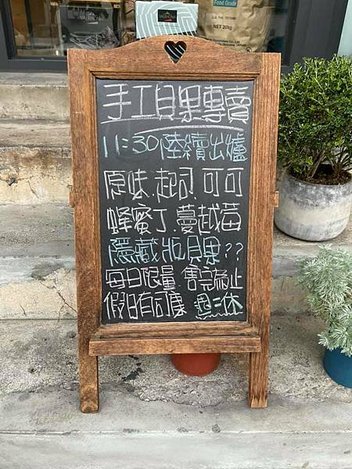 Food Grade
手工貝果專賣
11:30陸續出爐
原味.起司.可可
蜂蜜丁.蔓越莓
隱藏版貝果??
每日限量 售完為止
假日有可慶 週二休